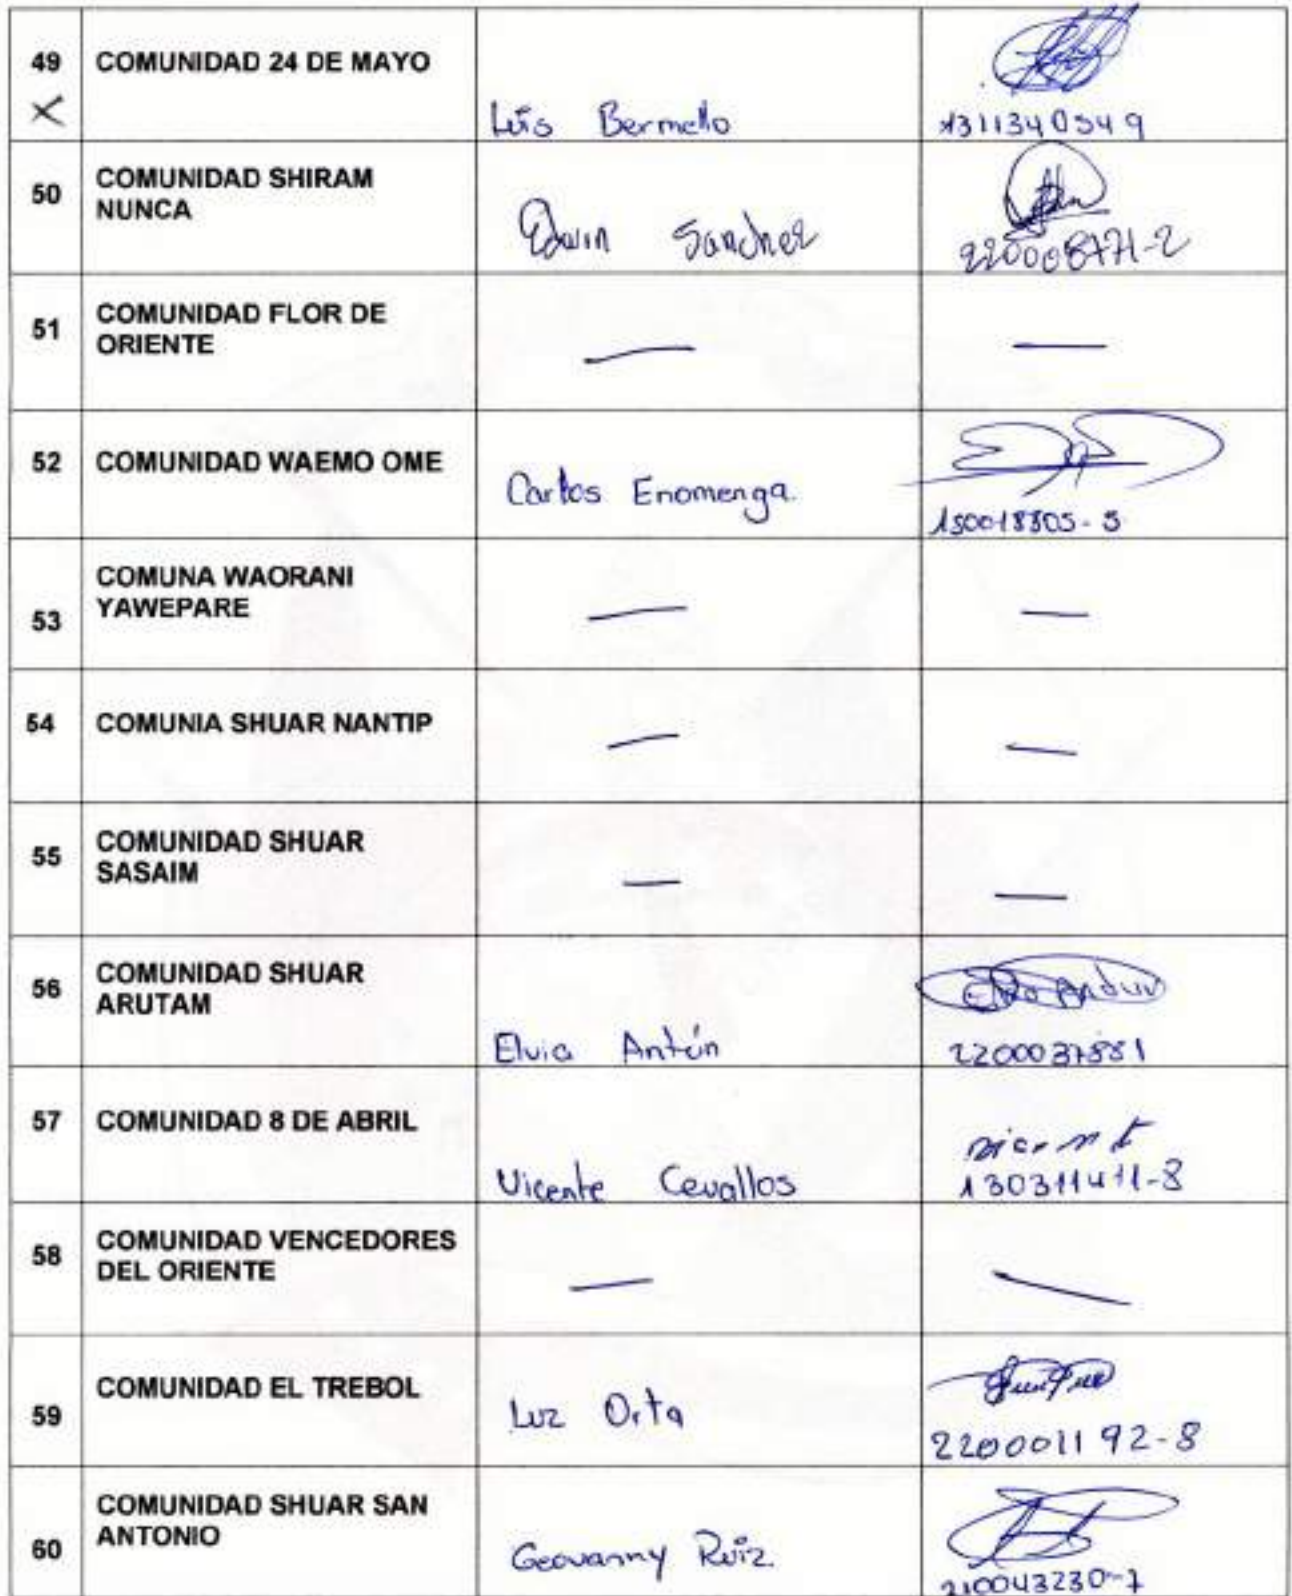 49 COMUNIDAD 24 DE MAYO
X
Luis Bermello 1311340549
50 COMUNIDAD SHIRAM
NUNCA
Edwin Sanchez 220008771-2
51 COMUNIDAD FLOR DE
ORIENTE
— —
52 COMUNIDAD WAEMO OME
Carlos Enomenga. 150018805-5
COMUNA WAORANI
YAWEPARE
53 — —
54 COMUNIA SHUAR NANTIP
— —
55 COMUNIDAD SHUAR
SASAIM
— —
56 COMUNIDAD SHUAR
ARUTAM
Elvia Antún 2200037881
57 COMUNIDAD 8 DE ABRIL
Vicente Cevallos 130311411-8
58 COMUNIDAD VENCEDORES
DEL ORIENTE
— —
COMUNIDAD EL TREBOL
59 Luz Orta 220001192-8
COMUNIDAD SHUAR SAN
ANTONIO
60 Geovanny Ruiz 210043230-7